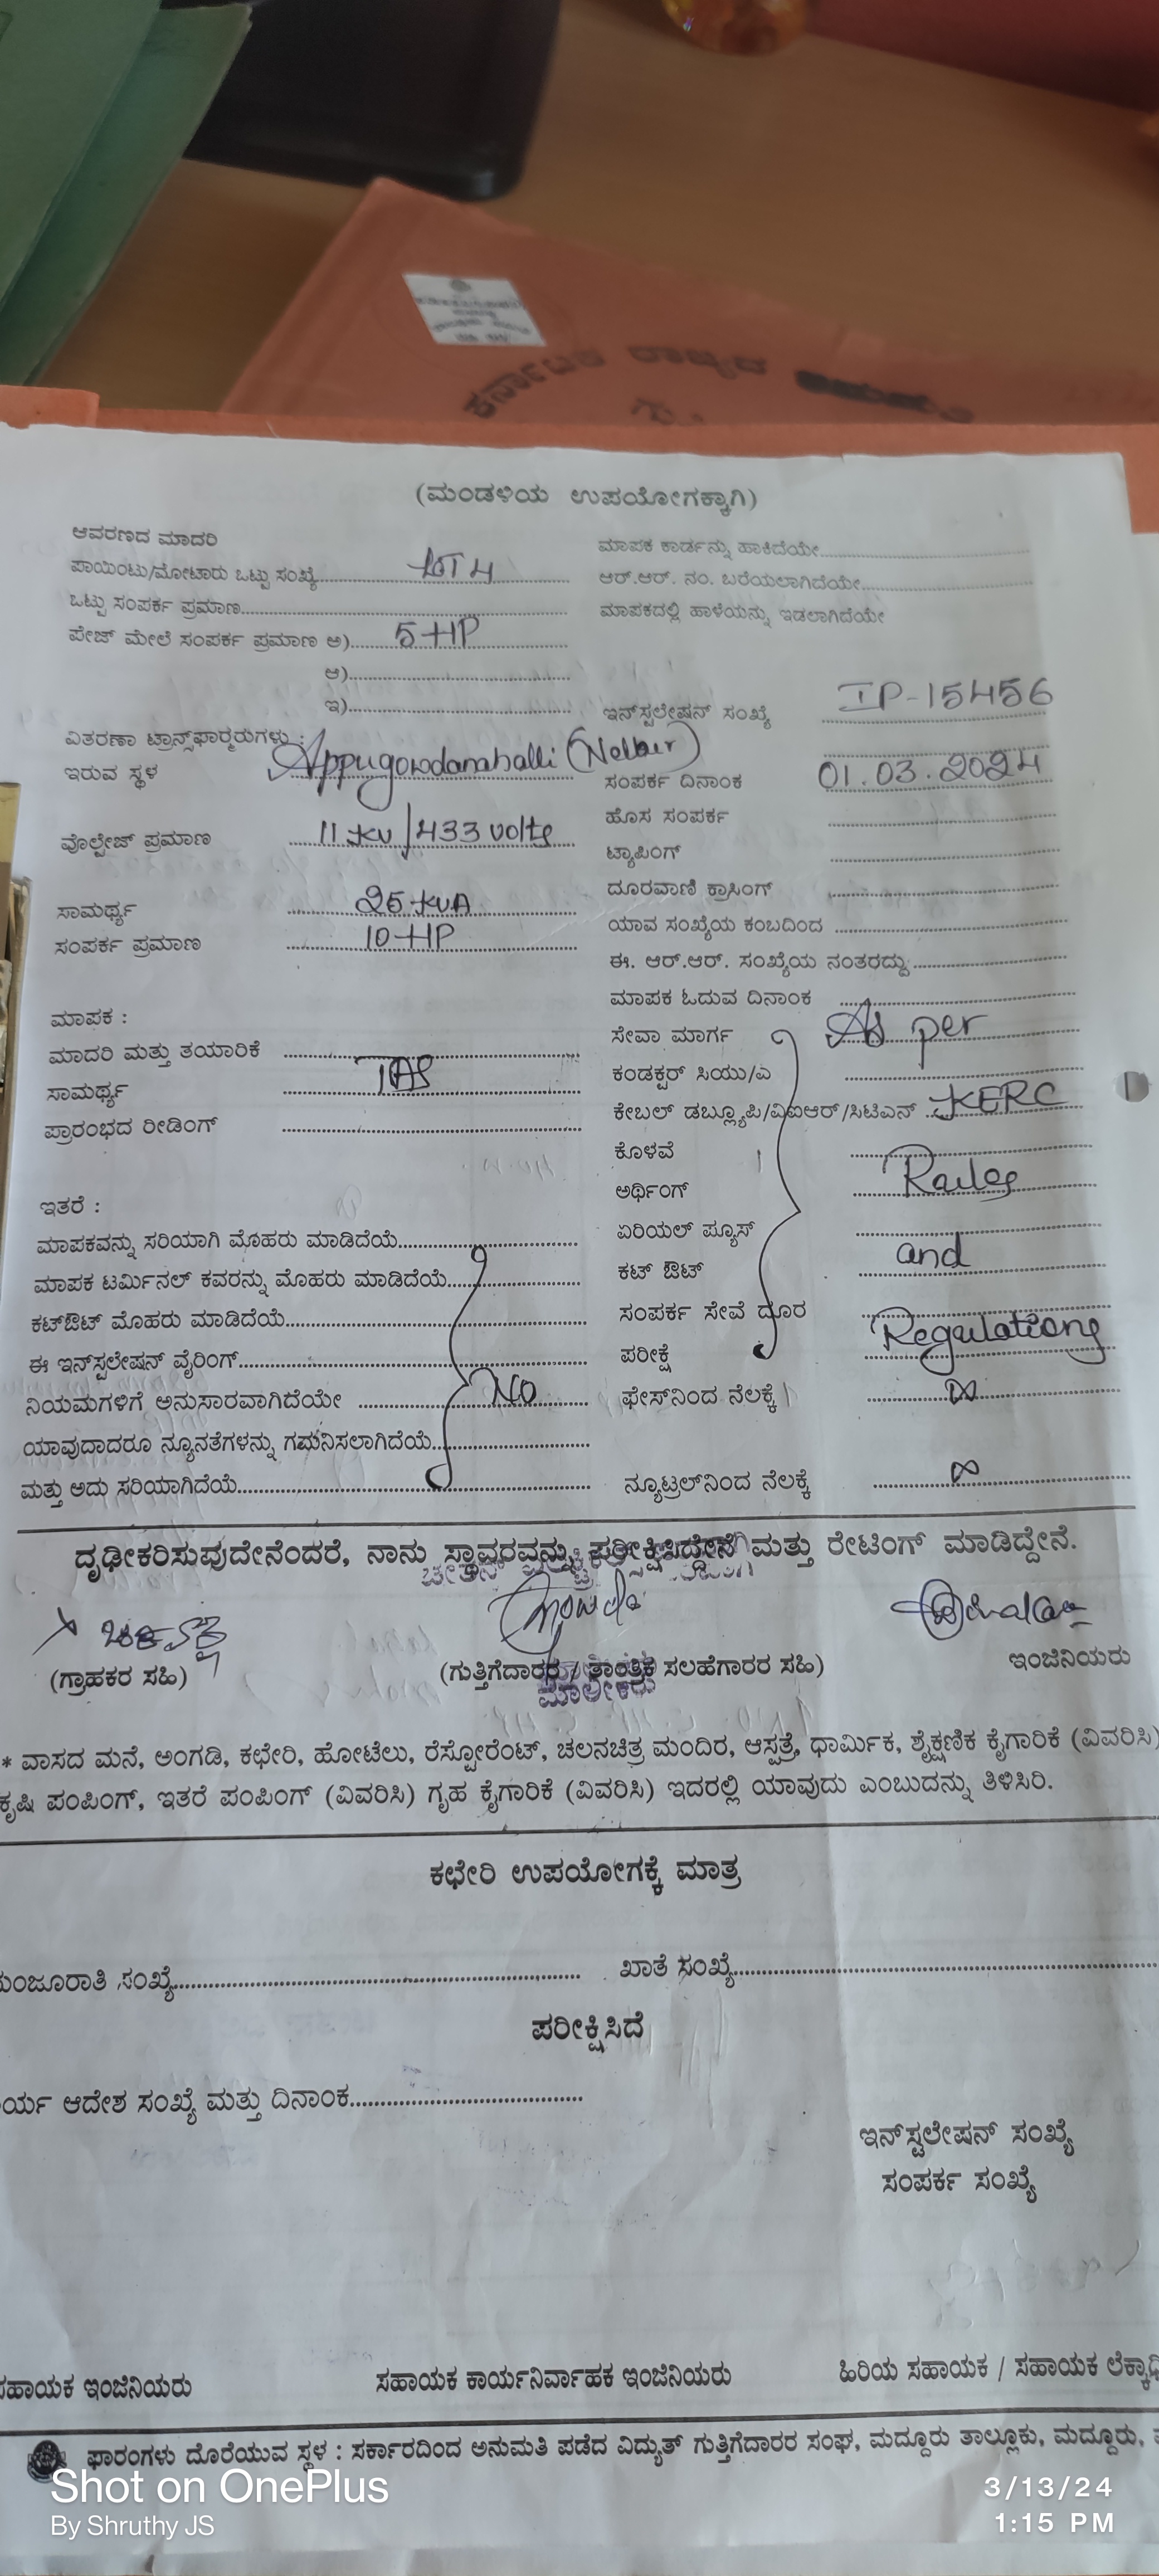 ಕರ್ನಾಟಕ ರಾಜ್ಯದ
(ಮಂಡಳಿಯ ಉಪಯೋಗಕ್ಕಾಗಿ)
ಆವರಣದ ಮಾದರಿ
ಪಾಯಿಂಟು/ಮೋಟಾರು ಒಟ್ಟು ಸಂಖ್ಯೆ LT4
ಒಟ್ಟು ಸಂಪರ್ಕ ಪ್ರಮಾಣ
ಪೇಜ್ ಮೇಲೆ ಸಂಪರ್ಕ ಪ್ರಮಾಣ ಅ) 5 HP
ಆ)
ಇ)
ವಿತರಣಾ ಟ್ರಾನ್ಸ್‌ಫಾರ್‍ಮರುಗಳು :
ಇರುವ ಸ್ಥಳ Appugowdanahalli
ವೊಲ್ಟೇಜ್ ಪ್ರಮಾಣ 11 KV/433 volts
ಸಾಮರ್ಥ್ಯ 25 KVA
ಸಂಪರ್ಕ ಪ್ರಮಾಣ 10 HP
ಮಾಪಕ :
ಮಾದರಿ ಮತ್ತು ತಯಾರಿಕೆ
ಸಾಮರ್ಥ್ಯ
ಪ್ರಾರಂಭದ ರೀಡಿಂಗ್
ಇತರೆ :
ಮಾಪಕವನ್ನು ಸರಿಯಾಗಿ ಮೊಹರು ಮಾಡಿದೆಯೆ
ಮಾಪಕ ಟರ್ಮಿನಲ್ ಕವರನ್ನು ಮೊಹರು ಮಾಡಿದೆಯೆ
ಕಟ್‌ಔಟ್ ಮೊಹರು ಮಾಡಿದೆಯೆ
ಈ ಇನ್‌ಸ್ಪಲೇಷನ್ ವೈರಿಂಗ್
ನಿಯಮಗಳಿಗೆ ಅನುಸಾರವಾಗಿದೆಯೇ NO
ಯಾವುದಾದರೂ ನ್ಯೂನತೆಗಳನ್ನು ಗಮನಿಸಲಾಗಿದೆಯೆ
ಮತ್ತು ಅದು ಸರಿಯಾಗಿದೆಯೆ
ಮಾಪಕ ಕಾರ್ಡನ್ನು ಹಾಕಿದೆಯೇ
ಆರ್.ಆರ್. ನಂ. ಬರೆಯಲಾಗಿದೆಯೇ
ಮಾಪಕದಲ್ಲಿ ಹಾಳೆಯನ್ನು ಇಡಲಾಗಿದೆಯೇ
ಇನ್‌ಸ್ಪಲೇಷನ್ ಸಂಖ್ಯೆ IP-15456
ಸಂಪರ್ಕ ದಿನಾಂಕ 01.03.2024
ಹೊಸ ಸಂಪರ್ಕ
ಟ್ಯಾಪಿಂಗ್
ದೂರವಾಣಿ ಕ್ರಾಸಿಂಗ್
ಯಾವ ಸಂಖ್ಯೆಯ ಕಂಬದಿಂದ
ಈ. ಆರ್.ಆರ್. ಸಂಖ್ಯೆಯ ನಂತರದ್ದು
ಮಾಪಕ ಓದುವ ದಿನಾಂಕ
ಸೇವಾ ಮಾರ್ಗ As per
ಕಂಡಕ್ಟರ್ ಸಿಯು/ಎ
ಕೇಬಲ್ ಡಬ್ಲ್ಯೂಪಿ/ವಿಐಆರ್/ಸಿಟಿಎನ್ KERC
ಕೊಳವೆ
ಅರ್ಥಿಂಗ್ Rules
ಏರಿಯಲ್ ಪ್ಯೂಸ್
ಕಟ್ ಔಟ್ and
ಸಂಪರ್ಕ ಸೇವೆ ದೂರ
ಪರೀಕ್ಷೆ Regulations
ಫೇಸ್‌ನಿಂದ ನೆಲಕ್ಕೆ ∞
ನ್ಯೂಟ್ರಲ್‌ನಿಂದ ನೆಲಕ್ಕೆ ∞
ದೃಢೀಕರಿಸುವುದೇನೆಂದರೆ, ನಾನು ಸ್ಥಾವರವನ್ನು ಪರೀಕ್ಷಿಸಿದ್ದೇನೆ ಮತ್ತು ರೇಟಿಂಗ್ ಮಾಡಿದ್ದೇನೆ.
(ಗ್ರಾಹಕರ ಸಹಿ) (ಗುತ್ತಿಗೆದಾರರ / ತಾಂತ್ರಿಕ ಸಲಹೆಗಾರರ ಸಹಿ) ಇಂಜಿನಿಯರು
ಮಾಲೀಕರು
* ವಾಸದ ಮನೆ, ಅಂಗಡಿ, ಕಛೇರಿ, ಹೋಟೆಲು, ರೆಸ್ಟೋರೆಂಟ್, ಚಲನಚಿತ್ರ ಮಂದಿರ, ಆಸ್ಪತ್ರೆ, ಧಾರ್ಮಿಕ, ಶೈಕ್ಷಣಿಕ ಕೈಗಾರಿಕೆ (ವಿವರಿಸಿ)
ಕೃಷಿ ಪಂಪಿಂಗ್, ಇತರೆ ಪಂಪಿಂಗ್ (ವಿವರಿಸಿ) ಗೃಹ ಕೈಗಾರಿಕೆ (ವಿವರಿಸಿ) ಇದರಲ್ಲಿ ಯಾವುದು ಎಂಬುದನ್ನು ತಿಳಿಸಿರಿ.
ಕಛೇರಿ ಉಪಯೋಗಕ್ಕೆ ಮಾತ್ರ
ಮಂಜೂರಾತಿ ಸಂಖ್ಯೆ ಖಾತೆ ಸಂಖ್ಯೆ
ಪರೀಕ್ಷಿಸಿದೆ
ರ್ಯ ಆದೇಶ ಸಂಖ್ಯೆ ಮತ್ತು ದಿನಾಂಕ
ಇನ್‌ಸ್ಟಲೇಷನ್ ಸಂಖ್ಯೆ
ಸಂಪರ್ಕ ಸಂಖ್ಯೆ
ಸಹಾಯಕ ಇಂಜಿನಿಯರು ಸಹಾಯಕ ಕಾರ್ಯನಿರ್ವಾಹಕ ಇಂಜಿನಿಯರು ಹಿರಿಯ ಸಹಾಯಕ / ಸಹಾಯಕ ಲೆಕ್ಕಾಧಿ
ಫಾರಂಗಳು ದೊರೆಯುವ ಸ್ಥಳ : ಸರ್ಕಾರದಿಂದ ಅನುಮತಿ ಪಡೆದ ವಿದ್ಯುತ್ ಗುತ್ತಿಗೆದಾರರ ಸಂಘ, ಮದ್ದೂರು ತಾಲ್ಲೂಕು, ಮದ್ದೂರು,
Shot on OnePlus
By Shruthy JS
3/13/24
1:15 PM